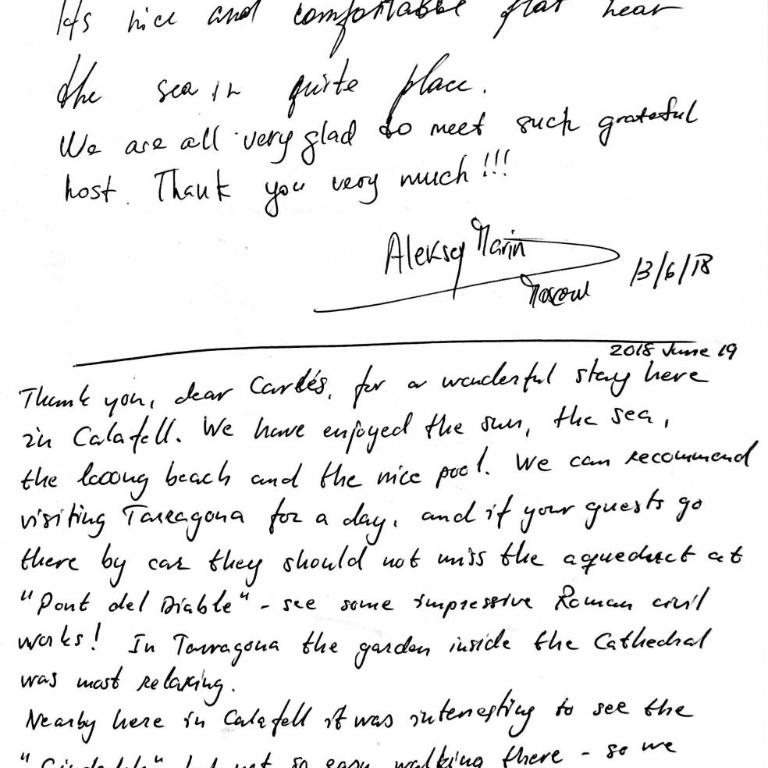 It's nice and comfortable flat near
the sea in quite place.
We are all very glad to meet such grateful
host. Thank you very much!!!
Aleksey Marin
13/6/18
2018 June 19
Thank you, dear Carlés, for a wonderful stay here
in Calafell. We have enjoyed the sun, the sea,
the looong beach and the nice pool. We can recommend
visiting Tarragona for a day, and if your guests go
there by car they should not miss the aqueduct at
"Pont del Diable" - see some impressive Roman civil
works! In Tarragona the garden inside the Cathedral
was most relaxing.
Nearby here in Calafell it was interesting to see the
not so easy walking there - so we